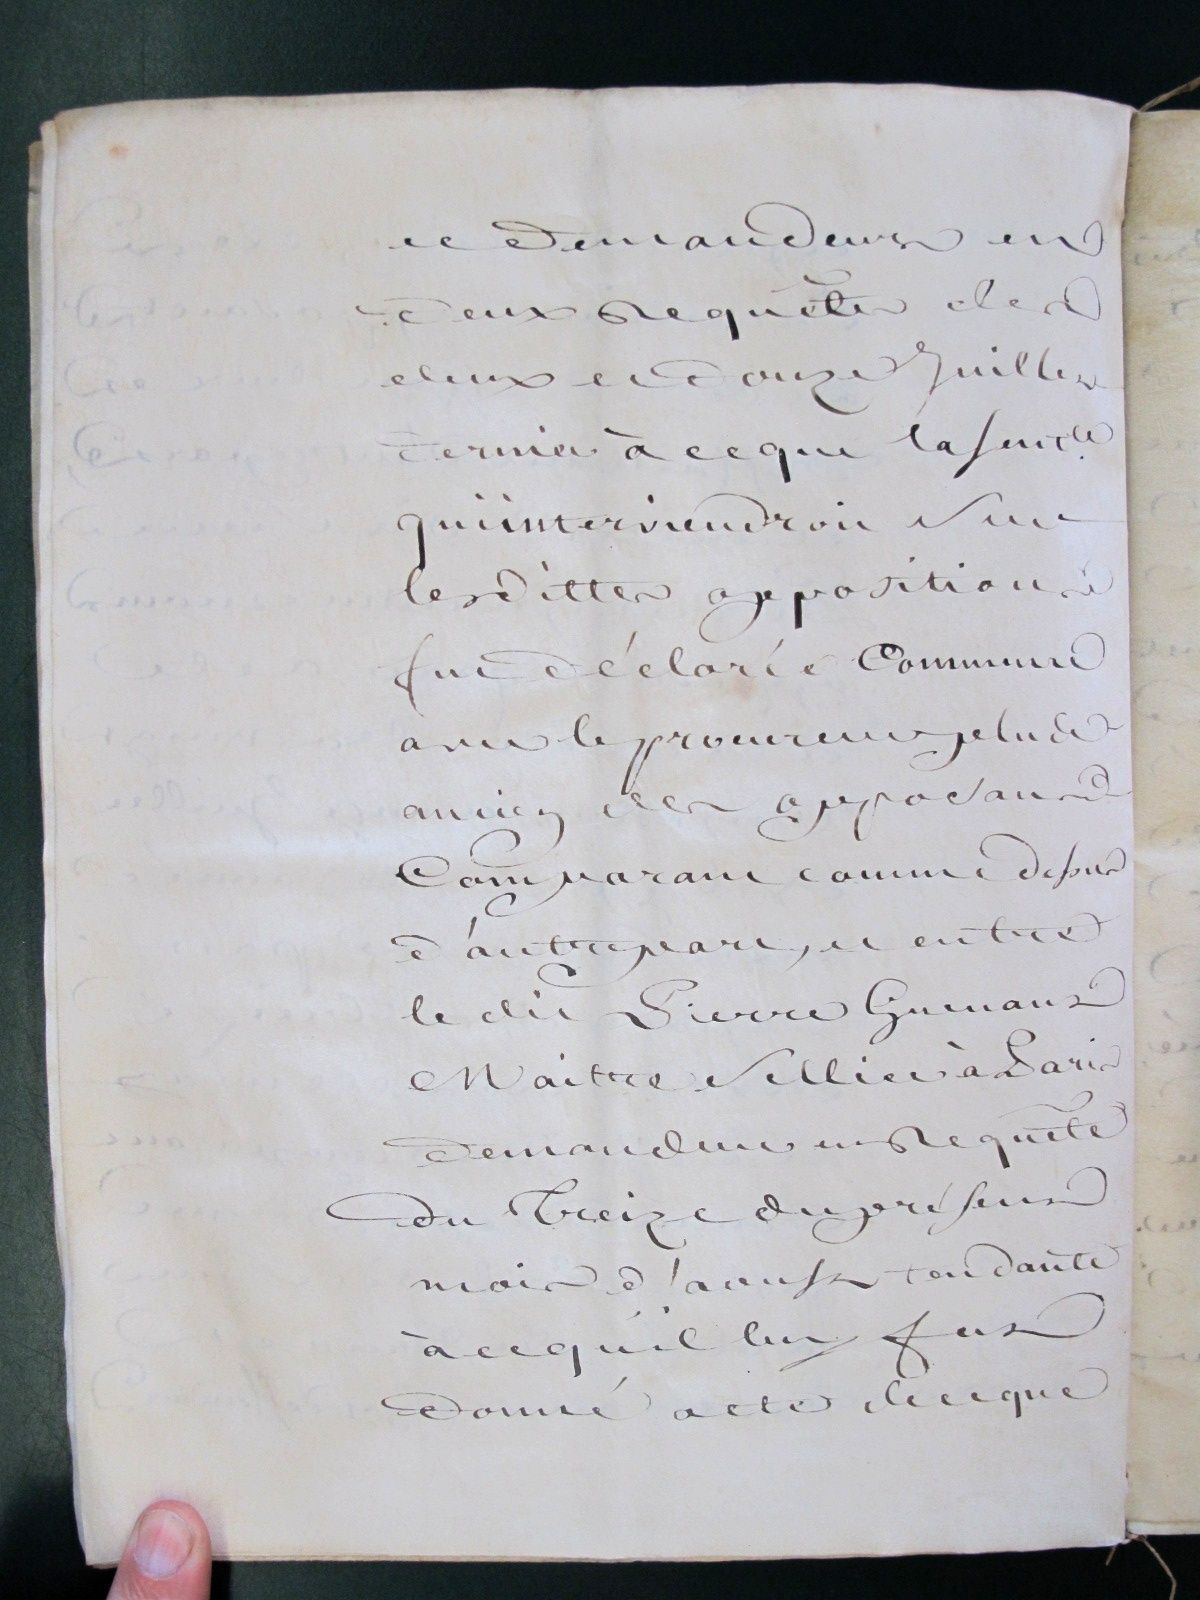 et demandeurs en
deux Requêtes des
deux et douze Juillet
dernier à ceque la sent.ce
qui interviendroit sur
lesdittes oppositions
fut déclarée Commune
avec le procureur plus
ancien des opposans
Comparant comme dessus
d'autre part, et entre
le dit Pierre
Maitre Sellier à Paris
demandeur en Requête
du treize du présent
mois d'aoust tendante
à cequ'il luy fut
donné acte de ceque